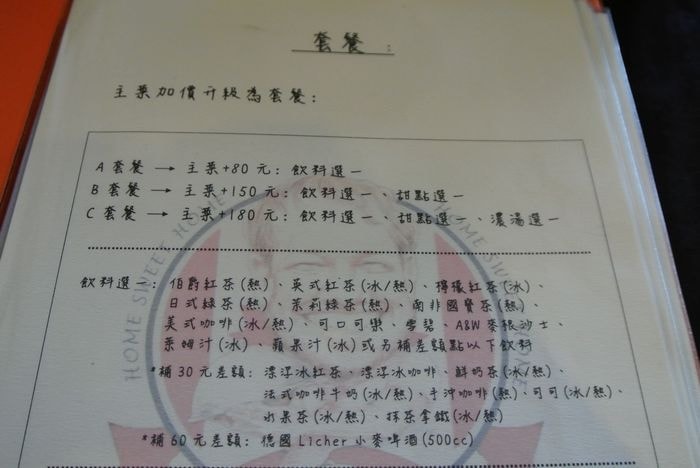 套餐：
主菜加價升級為套餐：
A 套餐 → 主菜+80 元：飲料選一
B 套餐 → 主菜+150 元：飲料選一、甜點選一
C 套餐 → 主菜+180 元：飲料選一、甜點選一、濃湯選一
飲料選一：伯爵紅茶(熱)、英式紅茶(冰/熱)、檸檬紅茶(冰)、
日式綠茶(熱)、茉莉綠茶(熱)、南非國寶茶(熱)、
美式咖啡(冰/熱)、可口可樂、雪碧、A&W 麥根沙士、
萊姆汁(冰)、蘋果汁(冰)或另補差額點以下飲料
*補 30 元差額：漂浮冰紅茶、漂浮冰咖啡、鮮奶茶(冰/熱)、
法式咖啡牛奶(冰/熱)、手沖咖啡(熱)、可可(冰/熱)、
水果茶(冰/熱)、抹茶拿鐵(冰/熱)
*補 60 元差額：德國 Licher 小麥啤酒(500cc)
HOME SWEET HOME
HOME SW
ONE